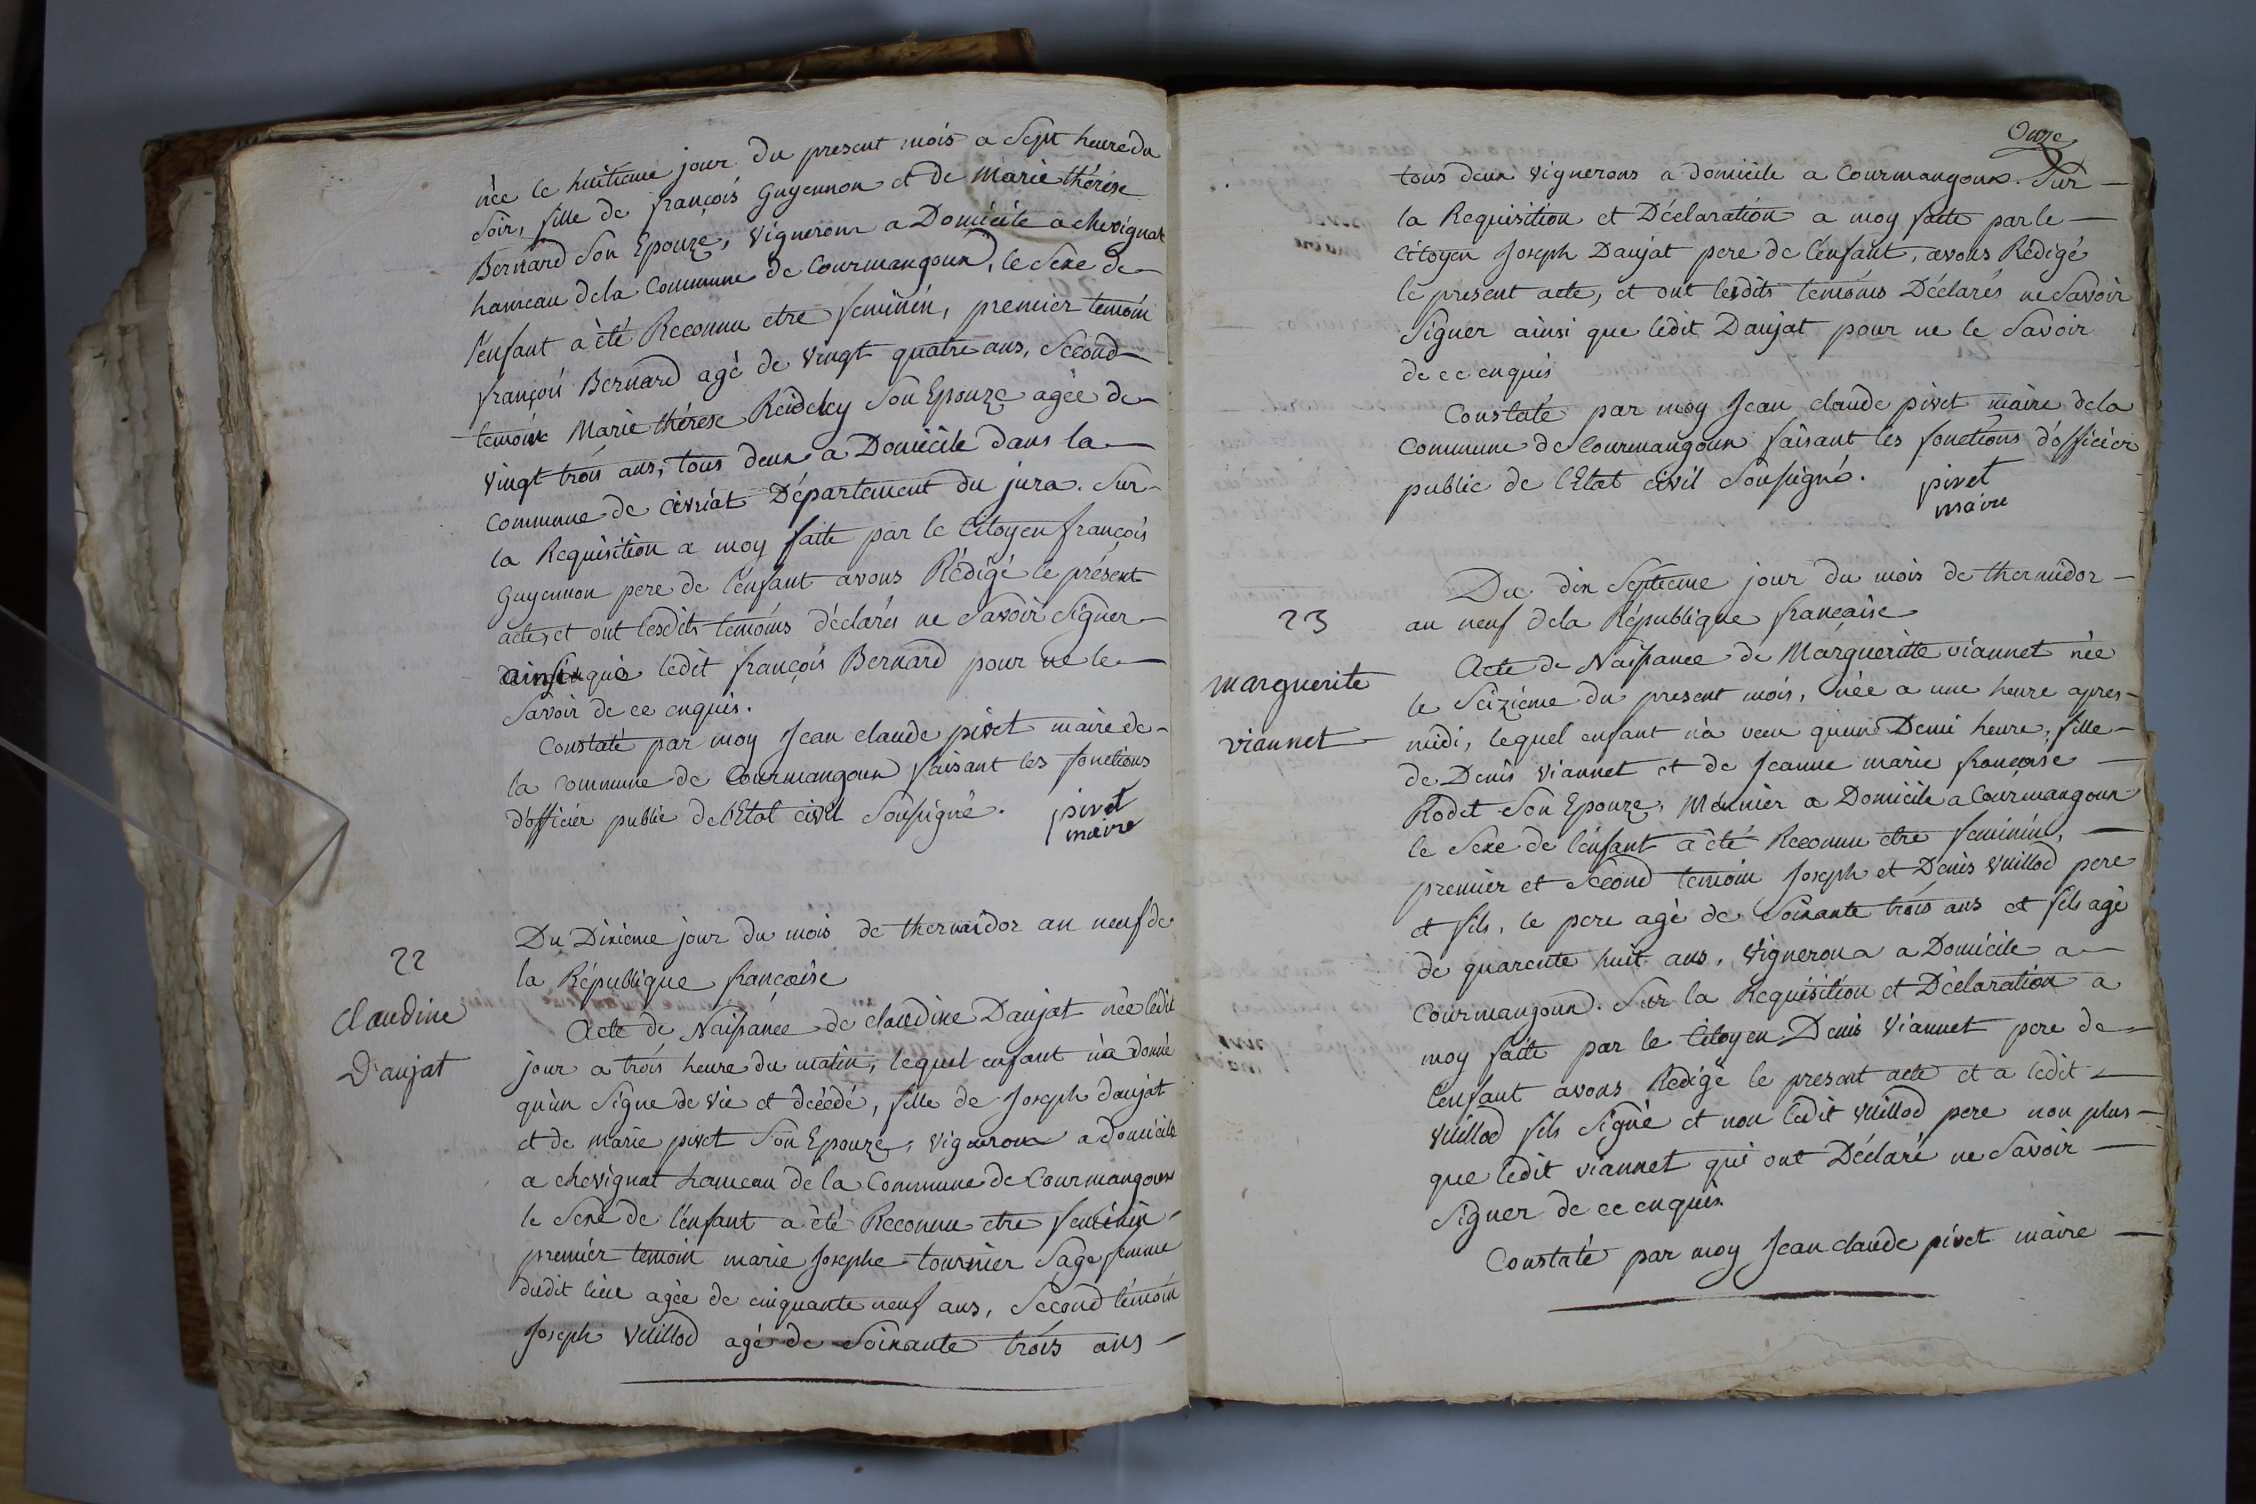 née le huitieme jour du present mois a Sept heure du
Soir, fille de françois Guyennon et de marie thérése
Bernard Son Epouze, vignerons a Domicile a chevignat
hameau dela Commune de Courmangoux, le Sexe de
l'enfant à été Reconnu etre feminin, premier temoin
françois Bernard agé de vingt quatre ans, Second
temoin Marie thérese Reidely Son Epouze agée de
vingt trois ans, tous deux a Domicile dans la
Commune de Civriat Département du jura. Sur
la Requisition a moy faite par le Citoyen françois
Guyennon pere de l'enfant avons Rédigé le présent
acte, et ont lesdits temoins déclarés ne Savoir Signer
ainsi que ledit françois Bernard pour ne le
Savoir de ce enquis.
Constaté par moy Jean claude pivet maire de
la commune de Courmangoux faisant les fonctions
d'officier public de l'Etat civil Soussigné.
pivet
maire
22
Claudine
Daujat
Du Dixieme jour du mois de thermidor an neuf de
la République françoise
Acte de Naissance de claudine Daujat née ledit
jour a trois heure du matin, lequel enfant n'a donné
qu'un Signe de vie et décédé, fille de Joseph daujat
et de marie pivet Son Epouze, vigneron a domicile
a chevignat hameau de la Commune de Courmangoux
le Sexe de l'enfant a été Reconnu etre feminin
premier temoin marie Josephe tournier Sage femme
dudit lieu agée de cinquante neuf ans, Second témoin
Joseph Vuillod agé de Soixante trois ans
Onze
tous deux vignerons a domicile a Courmangoux. Sur
la Requisition et Déclaration a moy faite par le
Citoyen Joseph Daujat pere de l'enfant, avons Rédigé
le present acte, et ont lesdits temoins Déclarés ne Savoir
Signer ainsi que ledit Daujat pour ne le Savoir
de ce enquis
Constaté par moy Jean claude pivet maire dela
Commune de Courmangoux faisant les fonctions d'officier
public de l'Etat civil Soussigné.
pivet
maire
23
marguerite
viannet
Du dix Septieme jour du mois de thermidor
an neuf dela République française
Acte de Naissance de Margueritte viannet née
le Seizieme du present mois, née a une heure apres
midi, lequel enfant n'à vecu qu'un Demi heure, fille
de Denis viannet et de Jeanne marie françoise
Rodet Son Epouze, Meunier a Domicile a Courmangoux
le Sexe de l'enfant à été Reconnu etre feminin,
premier et Second temoin Joseph et Denis Vuillod pere
et fils, le pere agé de Soixante trois ans et fils agé
de quarente huit ans, vigneron a Domicile a
Courmangoux. Sur la Requisition et Déclaration a
moy faite par le Citoyen Denis Viannet pere de
l'enfant avons Redigé le present acte et a ledit
Vuillod fils Signé et non ledit Vuillod pere non plus
que ledit viannet qui ont Déclaré ne Savoir
Signer de ce enquis
Constaté par moy Jean claude pivet maire